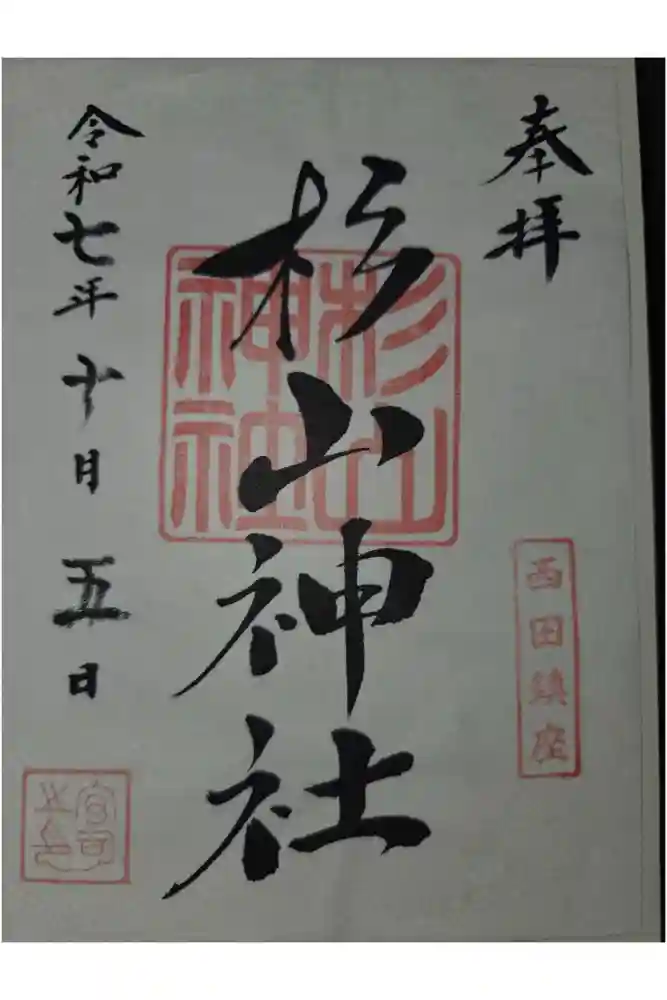 奉拝
西田鎮座
杉山神社
杉山
神社
令和七年十月五日
宮司之印